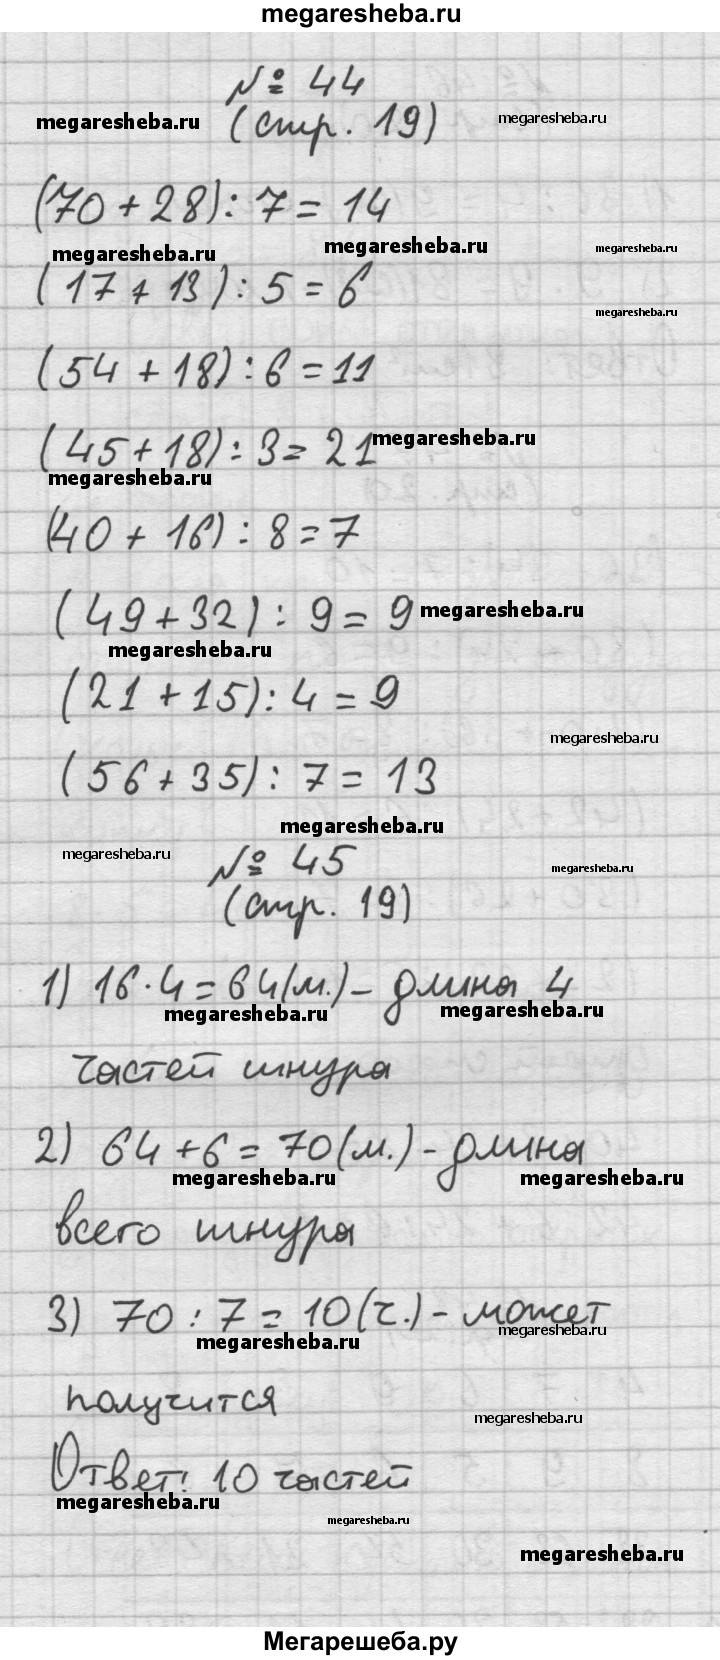 megaresheba.ru
№ 44
megaresheba.ru (стр. 19) megaresheba.ru
(70 + 28) : 7 = 14
megaresheba.ru megaresheba.ru megaresheba.ru
(17 + 13) : 5 = 6
megaresheba.ru
(54 + 18) : 6 = 11
(45 + 18) : 3 = 21 megaresheba.ru
megaresheba.ru
(40 + 16) : 8 = 7
(49 + 32) : 9 = 9 megaresheba.ru
megaresheba.ru
(21 + 15) : 4 = 9
megaresheba.ru
(56 + 35) : 7 = 13
megaresheba.ru
megaresheba.ru № 45 megaresheba.ru
(стр. 19)
1) 16 · 4 = 64 (м.) - длина 4
megaresheba.ru megaresheba.ru
частей шнура
2) 64 + 6 = 70 (м.) - длина
megaresheba.ru megaresheba.ru
всего шнура
3) 70 : 7 = 10 (ч.) - может
megaresheba.ru megaresheba.ru
получится
megaresheba.ru
Ответ: 10 частей
megaresheba.ru
megaresheba.ru
megaresheba.ru
Мегарешеба.ру